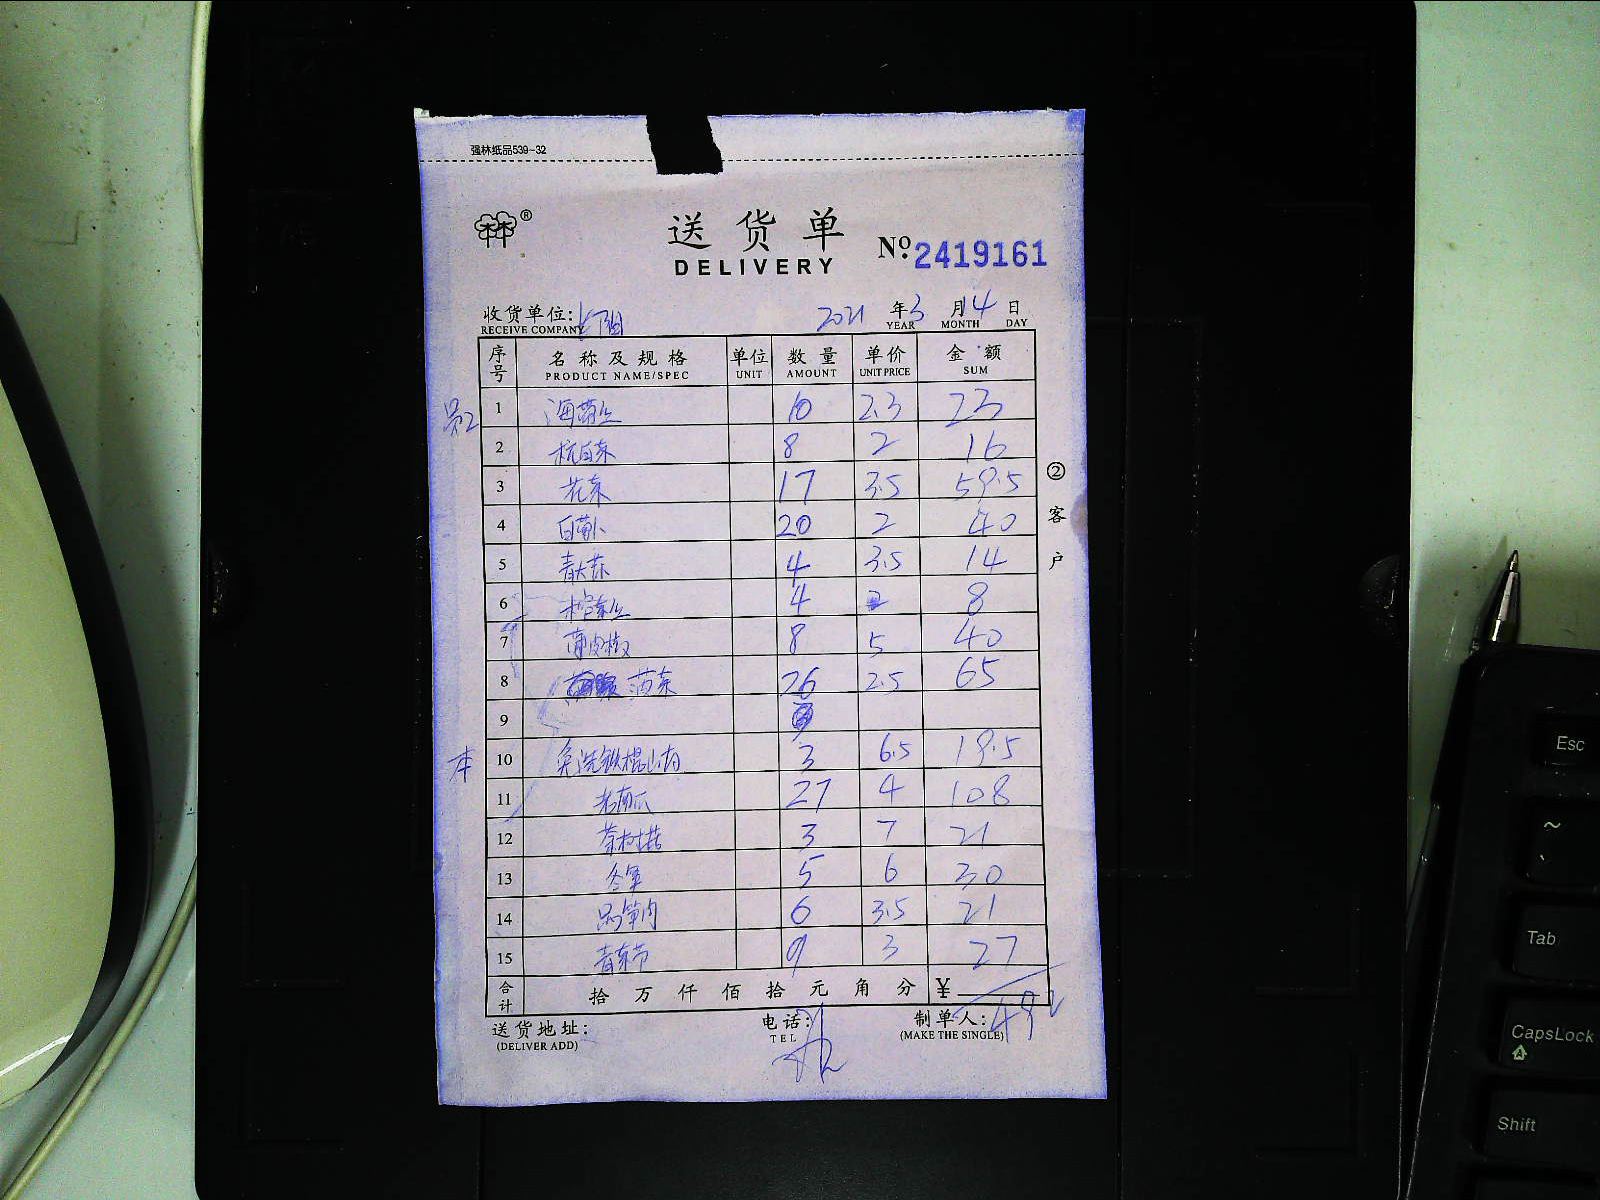 强林纸品539-32
林®
送货单
DELIVERY
№ 2419161
收货单位:
RECEIVE COMPANY
2021 年 3 月 14 日
YEAR MONTH DAY
序号 名称及规格 单位 数量 单价 金额
PRODUCT NAME/SPEC UNIT AMOUNT UNIT PRICE SUM
1 10 2.3 23
2 杭白菜 8 2 16
3 花菜 17 3.5 59.5
4 白萝卜 20 2 40
5 青大蒜 4 3.5 14
6 4 2 8
7 薄皮椒 8 5 40
8 菠菜 26 2.5 65
9
本 10 免洗铁棍山药 3 6.5 19.5
11 老南瓜 27 4 108
12 茶树菇 3 7 21
13 冬笋 5 6 30
14 6 3.5 21
15 9 3 27
合计 拾 万 仟 佰 拾 元 角 分 ¥
492
送货地址:
(DELIVER ADD)
电话:
TEL
制单人:
(MAKE THE SINGLE)
②客户
Esc
~
Tab
CapsLock
A
Shift